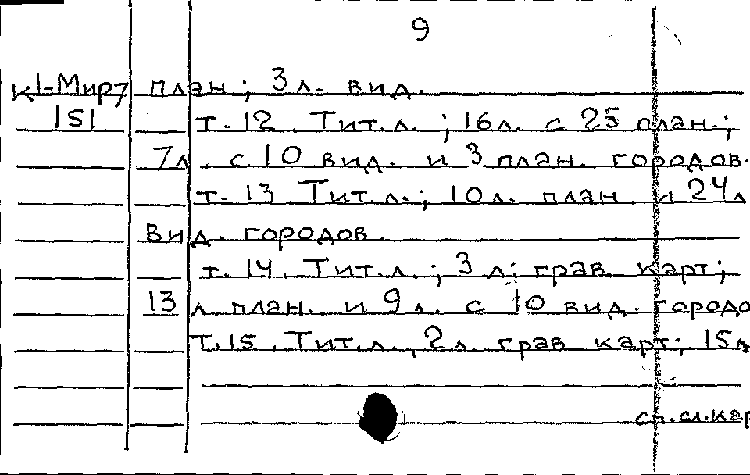 9
К1-Мир7 план; 3 л. вид.
151 т. 12. Тит. л.; 16 л. с 25 план.;
7 л. с 10 вид. и 3 план. городов.
т. 13 Тит. л.; 10 л. план. и 24 л
вид. городов.
т. 14. Тит. л.; 3 л. грав карт;
13 л план. и 9 л. с 10 вид. городо
Т. 15. Тит. л., 2 л. грав карт; 15 л
см. сл. кар